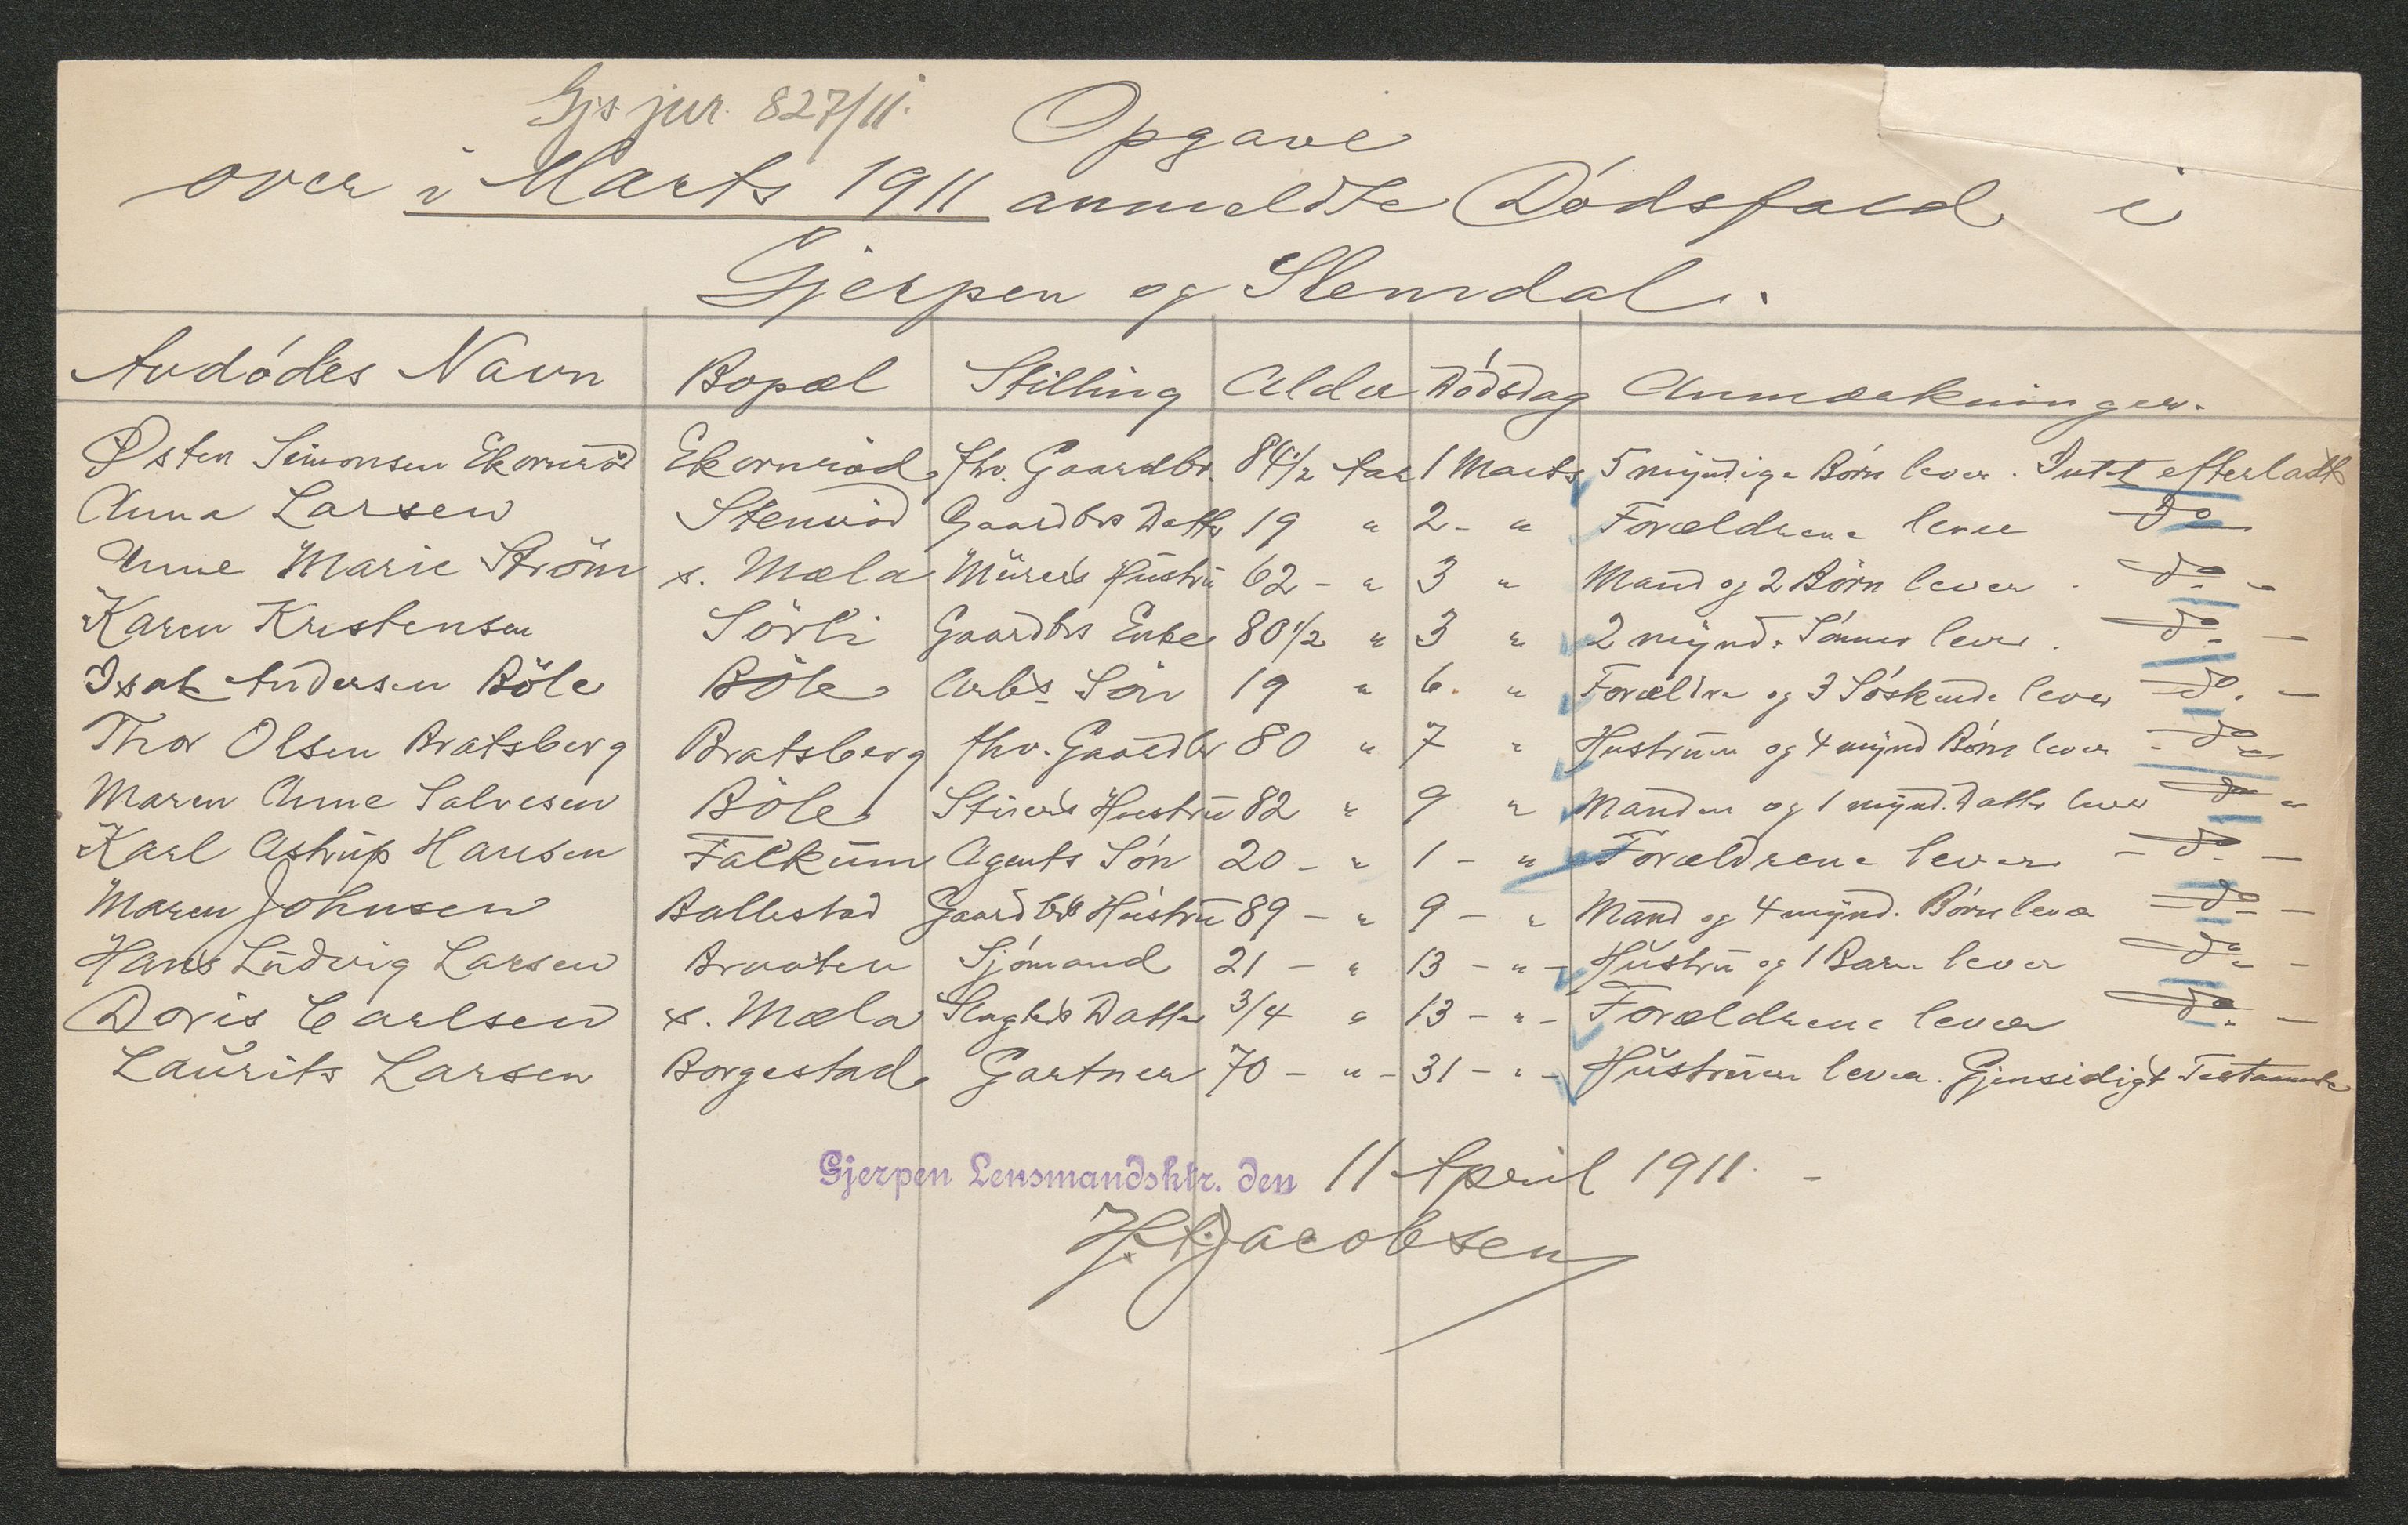 Gjs jur. 827/11.
Opgave
over i Marts 1911 anmeldte Dødsfald i
Gjerpen og Slemdal.
Avdødes Navn Bopæl Stilling Alder Dødsdag Anmærkninger.
Østen Simonsen Ekornrød Ekornrød fhv. Gaardbr. 84 1/2 Aar 1 Marts 5 myndige Børn lever. Intet efterladt
Anna Larsen Stenrød Gaardbrs Datter 19 " 2 - " Forældrene lever - do -
Anne Marie Ström s. Mæla Murers Hustru 62 - " 3 " Mand og 2 Børn lever. - do -
Karen Kristensen Sörli Gaardbrs Enke 80 1/2 " 3 " 2 mynd. Sønner lever. - do. -
Isak Andersen Böle Böle Arbs Søn 19 " 6. " Forældre og 3 Søskende lever - do. -
Thor Olsen Bratsberg Bratsberg fhv. Gaardbr 80 " 7 " Hustruen og 4 mynd Børn lever - do -
Maren Anne Salvesen Böle Hustru 82 " 9 " Manden og 1 mynd. Datter lever - do -
Karl Astrup Hansen Falkum Agents Søn 20 - " 1 - " Forældrene lever - do -
Maren Johnsen Ballestad Gaardbrs Hustru 89 - " 9 - " Mand og 4 mynd. Børn lever - do -
Hans Ludvig Larsen Sjømand 21 - " 13 - " - Hustru og 1 Barn lever - do -
Doris Carlsen s. Mæla Slagters Datter 3/4 " 13 - " - Forældrene lever - do. -
Laurits Larsen Borgestad Gartner 70 - " - 31 - " - Hustruen lever. Gjensidigt Testamente
Gjerpen Lensmandsktr. den 11 April 1911. -
Jacobsen